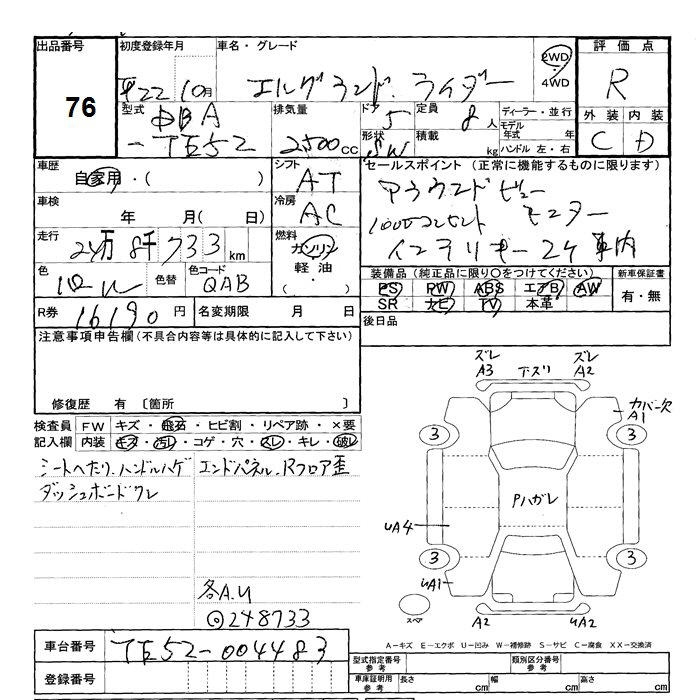 出品番号 初度登録年月 車名・グレード 2WD 4WD 評価点
76 平22 10月 エルグランド・ライダー R
型式 DBA -TE52 排気量 2500cc ドア 5 形状 SW 定員 8人 積載 kg ディーラー・並行 モデル年式 年 ハンドル 左・右 外装 内装
C D
車歴 自家用・( ) シフト AT セールスポイント (正常に機能するものに限ります)
アラウンドビュー
車検 年 月( 日) 冷房 AC 100Vコンセント モニター
走行 24万8千733km 燃料 ガソリン 軽油・( ・ ) インテリキー2ケ車内
色 色替 色コード QAB 装備品(純正品に限り○をつけてください) 新車保証書
PS PW ABS エアB AW 有・無
SR ナビ TV 本革
R券 16190円 名変期限 月 日 後日品
注意事項申告欄(不具合内容等は具体的に記入して下さい)
修復歴 有 〔箇所 〕
検査員 FW キズ・飛石・ヒビ割・リペア跡・×要
記入欄 内装 キズ・汚レ・コゲ・穴・スレ・キレ・破レ
シートヘたり、ハンドルハゲ エンドパネル、Rフロア歪
ダッシュボードワレ
各A.U
◎248733
ズレ A3 下スリ ズレ A2
カバー欠 A1
3 3
Pハガレ
UA4
3 3
UA1
スペア A2 UA2
A－キズ E－エクボ U－凹み W－補修跡 S－サビ C－腐食 XX－交換済
車台番号 TE52-004483
型式指定番号 参考 類別区分番号 参考
登録番号 車庫証明用 参考 長さ cm 幅 cm 高さ cm